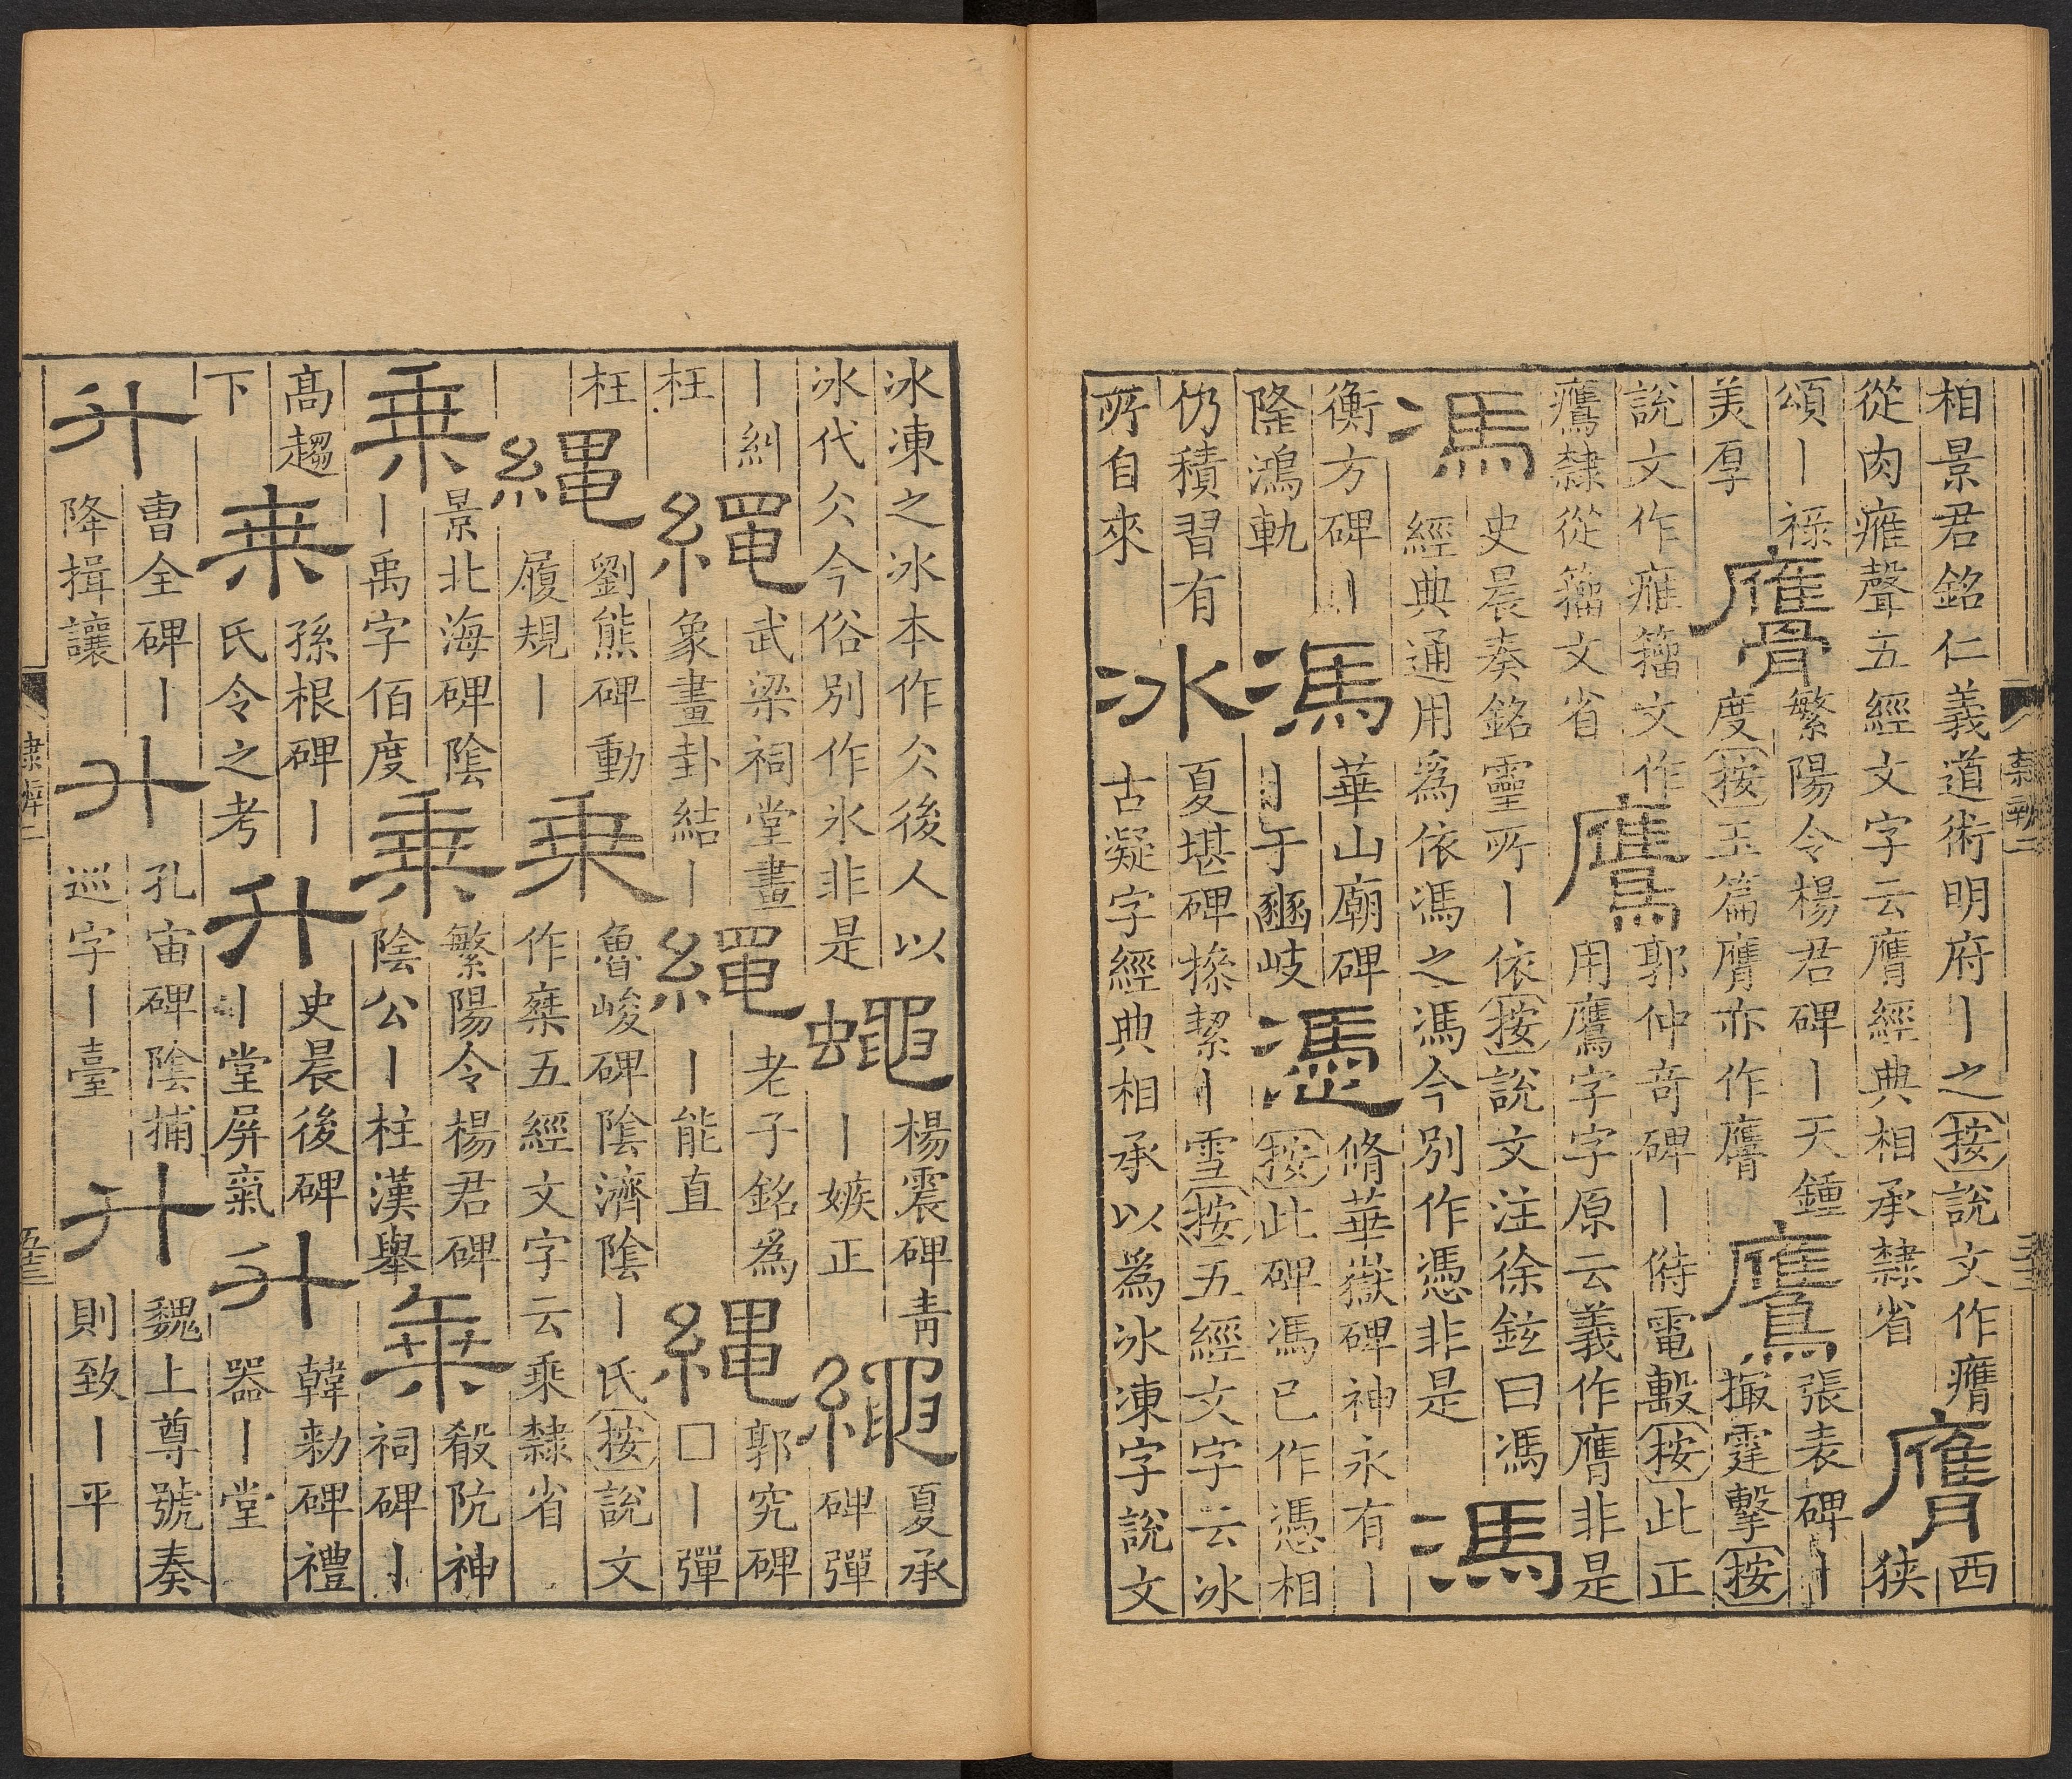 相景君銘仁義道術明府丨之按說文作癰
從肉痽聲五經文字云膺經典相承隸省
膺
西
狹
頌丨祿
美厚
膺
繁陽令楊君碑丨天鍾
度按玉篇膺亦作膺
鷹
張表碑丨
撮霆擊按
說文作痽籀文作
鷹隸從籀文省
鷹
郭仲奇碑丨偫電擊按此正
用鷹字字原云義作膺非是
馮
史晨奏銘靈所丨依按說文注徐鉉曰馮
經典通用爲依馮之馮今別作憑非是
馮
衡方碑丨
隆鴻軌
馮
華山廟碑
丨于豳岐
憑
脩華嶽碑神永有丨
按此碑馮已作憑相
仍積習有
所自來
冰
夏堪碑摻絜丨雪按五經文字云冰
古凝字經典相承以爲冰凍字說文
冰凍之冰本作仌後人以
冰代仌今俗別作氷非是
蠅
楊震碑青
丨嫉正
繩
夏承
碑彈
丨糾
枉
繩
武梁祠堂畫
象畫卦結丨
繩
老子銘爲
丨能直
繩
郭究碑
□丨彈
枉
繩
劉熊碑動
履規丨
乘
魯峻碑陰濟陰丨氏按說文
作椉五經文字云乘隸省
乘
景北海碑陰
丨禹字佰度
乘
繁陽令楊君碑
陰公丨柱漢舉
乘
殽阬神
祠碑丨
高趨
下
乘
孫根碑丨
氏令之考
升
史晨後碑
丨堂屏氣
升
韓勑碑禮
器丨堂
升
曹全碑丨
降揖讓
升
孔宙碑陰捕
巡字丨臺
升
魏上尊號奏
則致丨平
隸辨二
五十三